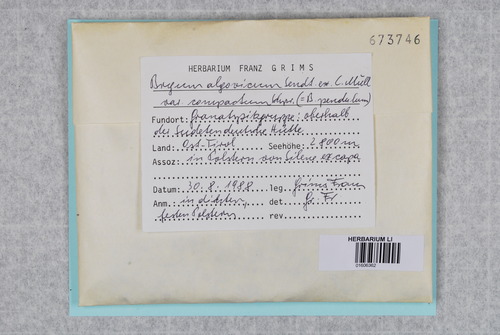 673746
HERBARIUM FRANZ GRIMS
Bryum algovicum Sendt. ex. C. Müll
var. compactum (= B. pendulum)
Fundort: Granatspitzgruppe: oberhalb
der Sudetendeutsche Hütte
Land: Ost-Tirol Seehöhe: 2800m
Assoz: in Polstern von Silene exscapa
Datum: 30.8.1988 leg. Grims Franz
Anm. in dichten, det. Gr. Fr
festen Polstern rev.
HERBARIUM LI